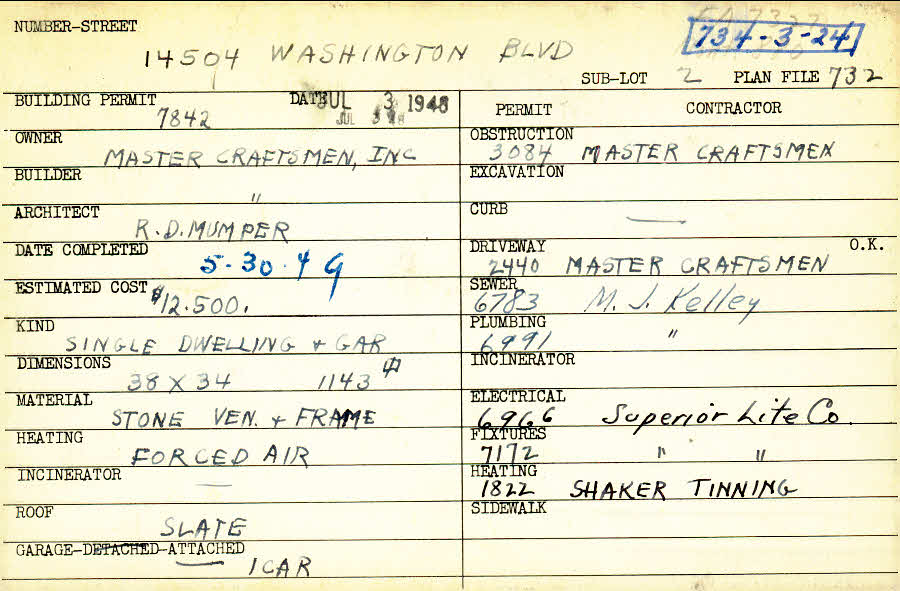 NUMBER-STREET
14504 WASHINGTON BLVD
734-3-24
SUB-LOT 2 PLAN FILE 732
BUILDING PERMIT 7842 DATE JUL 3 1948
OWNER MASTER CRAFTSMEN, INC
BUILDER "
ARCHITECT R.D. MUMPER
DATE COMPLETED 5-30-49
ESTIMATED COST $12.500.
KIND SINGLE DWELLING + GAR
DIMENSIONS 38 X 34 1143
MATERIAL STONE VEN. + FRAME
HEATING FORCED AIR
INCINERATOR —
ROOF SLATE
GARAGE-DETACHED-ATTACHED 1 CAR
PERMIT CONTRACTOR
OBSTRUCTION 3084 MASTER CRAFTSMEN
EXCAVATION
CURB —
DRIVEWAY O.K.
2440 MASTER CRAFTSMEN
SEWER 6783 M. J. Kelley
PLUMBING 6991 "
INCINERATOR
ELECTRICAL 6966 Superior Lite Co.
FIXTURES 7172 " "
HEATING 1822 SHAKER TINNING
SIDEWALK